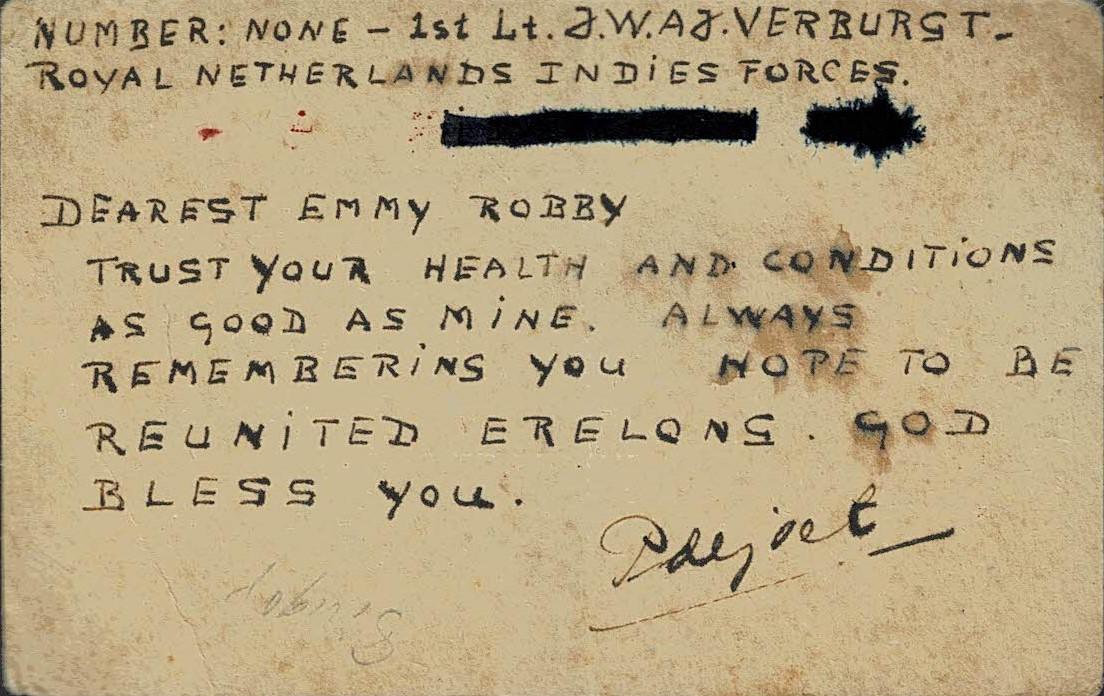 NUMBER: NONE – 1st Lt. J.W.A.J. VERBURGT.
ROYAL NETHERLANDS INDIES FORCES.
DEAREST EMMY ROBBY
TRUST YOUR HEALTH AND CONDITIONS
AS GOOD AS MINE. ALWAYS
REMEMBERING YOU HOPE TO BE
REUNITED ERELONG. GOD
BLESS YOU.